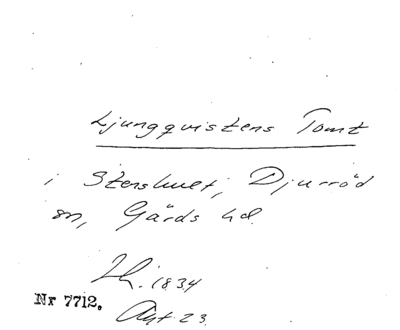 Ljungqvistens Tomt
i Stenshult, Djurröd
sn, Gärds hd.
1834
Nr 7712.
23.